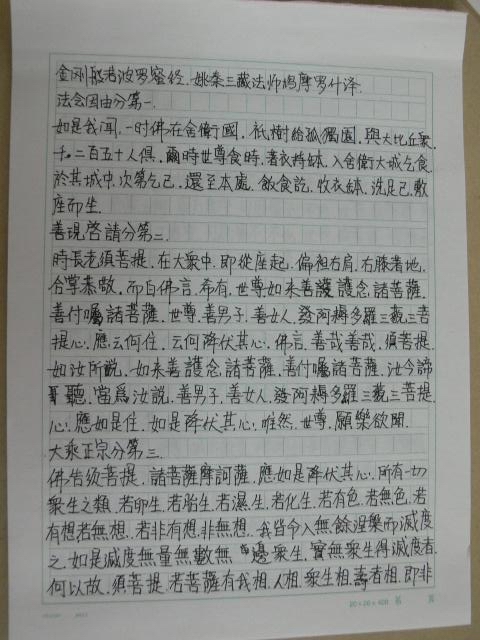 金刚般若波罗蜜经.姚秦三藏法师鸠摩罗什译.
法会因由分第一.
如是我闻.一时佛在舍衛國.祇樹給孤獨園.與大比丘衆.
千.二百五十人俱.爾時世尊食時.著衣持缽.入舍衛大城乞食.
於其城中.次第乞已.還至本處.飯食訖.收衣缽.洗足已.敷
座而坐.
善現啓請分第二.
時長老須菩提.在大衆中.即從座起.偏袒右肩.右膝著地.
合掌恭敬.而白佛言.希有.世尊.如来善護護念諸菩薩.
善付囑諸菩薩.世尊.善男子.善女人.發阿耨多羅三藐三菩
提心.應云何住.云何降伏其心.佛言.善哉善哉.須菩提.
如汝所説.如来善護念諸菩薩.善付囑諸菩薩.汝今諦
聽.當爲汝説.善男子.善女人.發阿耨多羅三藐三菩提
心.應如是住.如是降伏其心.唯然.世尊.願樂欲聞.
大乘正宗分第三.
佛告须菩提.諸菩薩摩訶薩.應如是降伏其心.所有一切
衆生之類.若卵生.若胎生.若濕生.若化生.若有色.若無色.若
有想若無想.若非有想.非無想.我皆令入無餘涅槃而滅度
之.如是滅度無量無數無邊衆生.實無衆生得滅度者.
何以故.須菩提.若菩薩有我相.人相.衆生相.壽者相.即非
20×20=400 第 頁